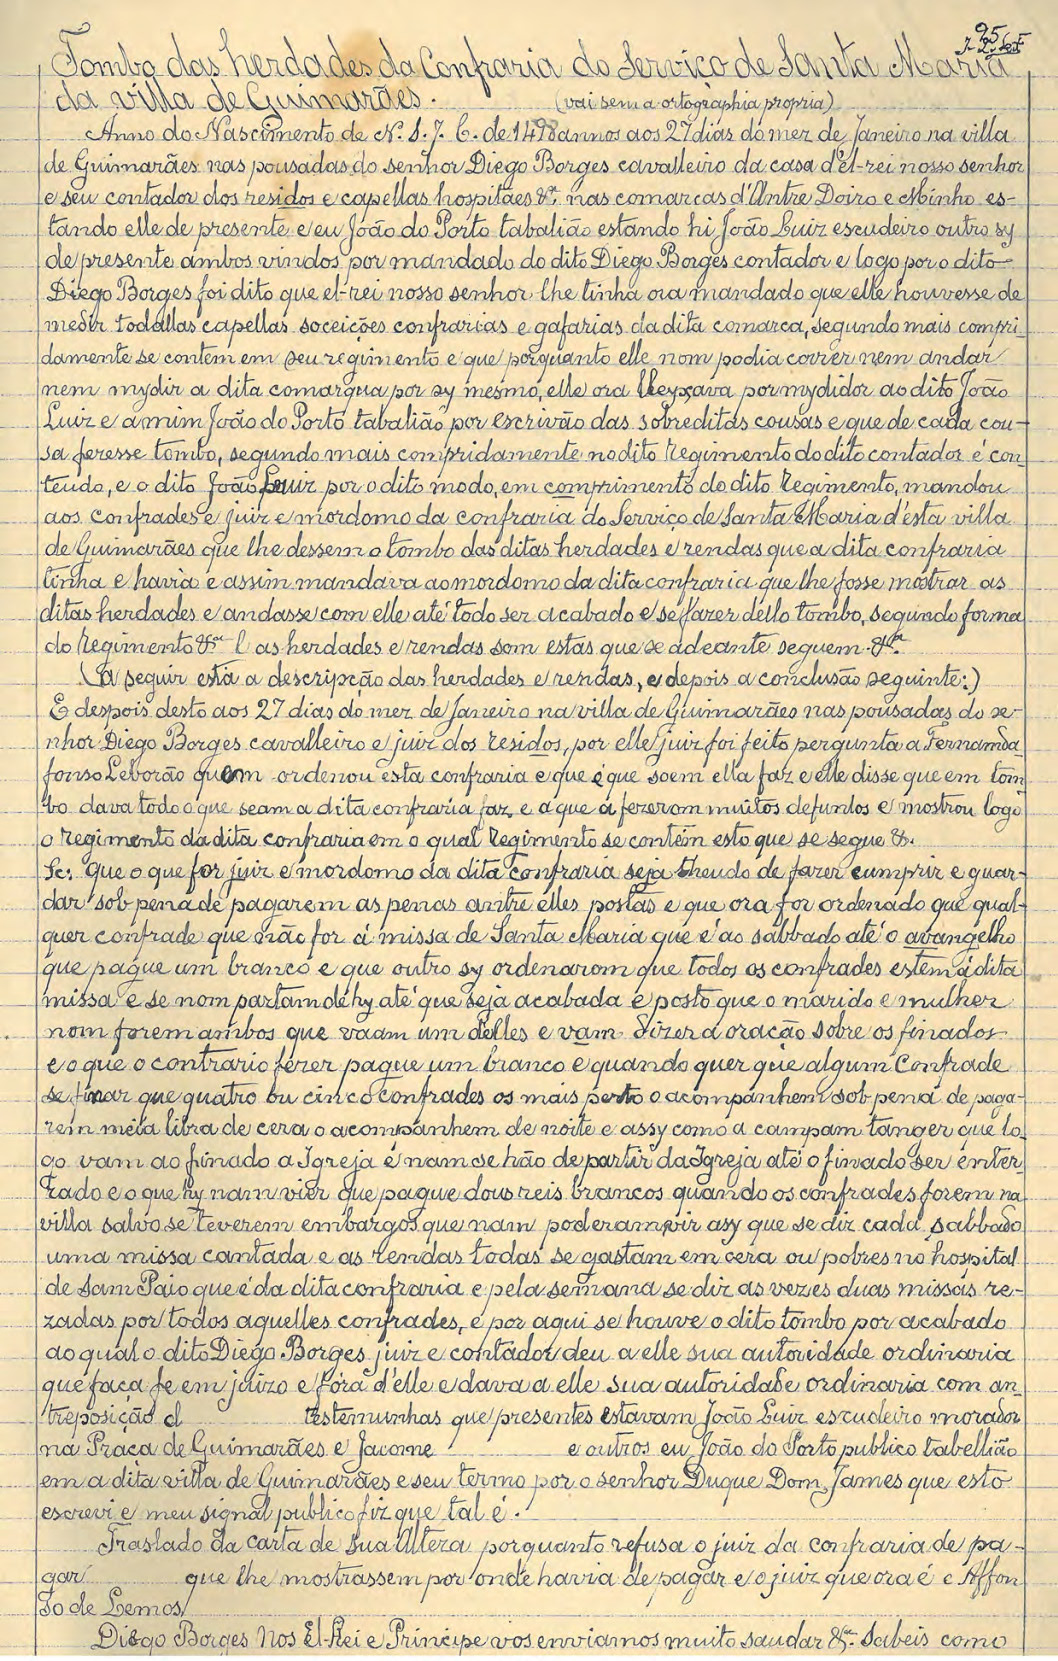 95
Tombo das herdades da Confraria do Serviço de Santa Maria
da villa de Guimarães. (vai sem a ortographia propria)
Anno do Nascimento de N. S. J. C. de 1498 annos aos 27 dias do mez de Janeiro na villa
de Guimarães nas pousadas do senhor Diego Borges cavalleiro da casa d'el-rei nosso senhor
e seu contador dos residos e capellas hospitaes &ª. nas comarcas d'Antre Doiro e Minho es-
tando elle de presente e eu João do Porto tabalião estando hi João Luiz escudeiro outro sy
de presente ambos vindos por mandado do dito Diego Borges contador e logo por o dito
Diego Borges foi dito que el-rei nosso senhor lhe tinha ora mandado que elle houvesse de
medir todallas capellas soceições confrarias e gafarias da dita comarca, segundo mais compri-
damente se contem em seu regimento e que porquanto elle nom podia correr nem andar
nem mydir a dita comarqua por sy mesmo, elle ora lleyxava por mydidor ao dito João
Luiz e a mim João do Porto tabalião por escrivão das sobreditas cousas e que de cada cou-
sa fezesse tombo, segundo mais compridamente no dito Regimento do dito contador é con-
teudo, e o dito João Luiz por o dito modo, em comprimento do dito Regimento, mandou
aos confrades e juiz e mordomo da confraria do Serviço de Santa Maria d'esta villa
de Guimarães que lhe dessem o tombo das ditas herdades e rendas que a dita confraria
tinha e havia e assim mandava ao mordomo da dita confraria que lhe fosse mostrar as
ditas herdades e andasse com elle até todo ser acabado e se fazer dello tombo, segundo forma
do Regimento &ª e as herdades e rendas som estas que se adeante seguem. &ª.
(A seguir está a descripção das herdades e rendas, e depois a conclusão seguinte:)
E despois desto aos 27 dias do mez de Janeiro na villa de Guimarães nas pousadas do se-
nhor Diego Borges cavalleiro e juiz dos residos, por elle juiz foi feito pergunta a Fernamda
fonso Leborão quem ordenou esta confraria e que é que soem ella faz e elle disse que em tom-
bo dava todo o que seam a dita confraria faz e a que a fezerom muitos defuntos e mostrou logo
o regimento da dita confraria em o qual Regimento se contém esto que se segue &.
Sc: que o que for juiz e mordomo da dita confraria seja theudo de fazer cumprir e guar-
dar sob pena de pagarem as penas antre elles postas e que ora for ordenado que qual-
quer confrade que não for á missa de Santa Maria que é ao sabbado até o avangelho
que pague um branco e que outro sy ordenarom que todos os confrades estem á dita
missa e se nom partam de hy até que seja acabada e posto que o marido e mulher
nom forem ambos que vaam um delles e vam dizer a oração sobre os finados
e o que o contrario fezer pague um branco e quando quer que algum Confrade
se finar que quatro ou cinco confrades os mais perto o acompanhem sob pena de paga-
rem meia libra de cera o acompanhem de noite e assy como a campam tanger que lo-
go vam ao finado a Igreja e nam se hão de partir da Igreja até o finado ser enter
rado e o que hy nam vier que pague dous reis brancos quando os confrades forem na
villa salvo se teverem embargos que nam poderam vir asy que se diz cada sabbado
uma missa cantada e as rendas todas se gastam em cera ou pobres no hospital
de Sam Paio que é da dita confraria e pela semana se diz as vezes duas missas re-
zadas por todos aquelles confrades, e por aqui se houve o dito tombo por acabado
ao qual o dito Diego Borges juiz e contador deu a elle sua autoridade ordinaria
que faça fe em juizo e fóra d'elle e dava a elle sua autoridade ordinaria com an-
treposição d testemunhas que presentes estavam João Luiz escudeiro morador
na Praça de Guimarães e Jacome e outros eu João do Porto publico tabellião
em a dita villa de Guimarães e seu termo por o senhor Duque Dom James que esto
escrevi e meu signal publico fiz que tal é.
Traslado da carta de sua Alteza porquanto refusa o juiz da confraria de pa-
gar que lhe mostrassem por onde havia de pagar e o juiz que ora é e Affon
so de Lemos
Diego Borges Nos El-Rei e Principe vos enviamos muito saudar &ª. Sabeis como